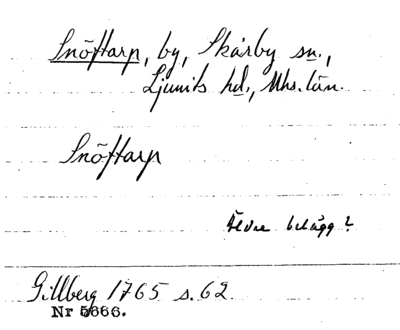 Snöftarp, by, Skårby sn.,
Ljunits hd., Mhs. län.
Snöftarp
Äldre belägg?
Gillberg 1765 s. 62
Nr 5666.